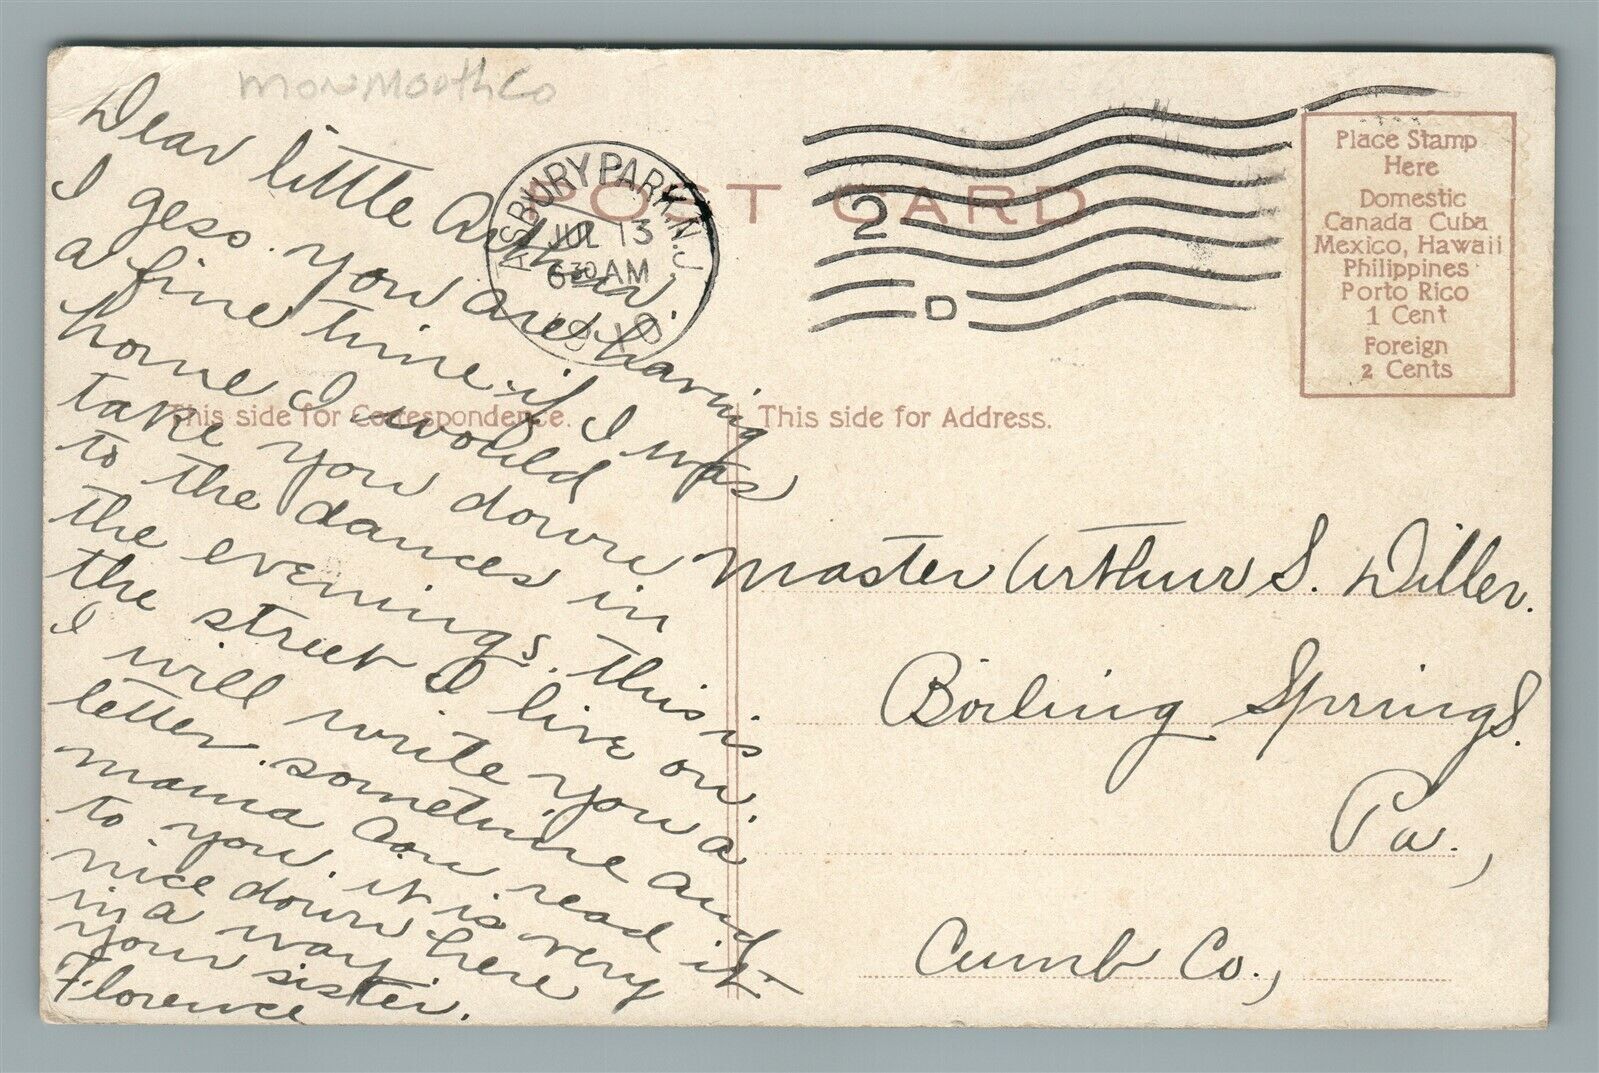 Monmouth Co
Dear little Arthur,
I gess you are having
a fine time if I was
home I would
take you down
to the dances in
the evenings. this is
the street I live on
I will write you a
letter sometime and
mama can read it
to you it is very
nice down here
in a way
your sister.
Florence
POST CARD
ASBURY PARK, N.J.
JUL 13
6 30 AM
1910
2
D
Place Stamp
Here
Domestic
Canada Cuba
Mexico, Hawaii
Philippines
Porto Rico
1 Cent
Foreign
2 Cents
This side for Correspondence.
This side for Address.
Master Arthur S. Diller.
Boiling Springs.
Pa.,
Cumb Co.,